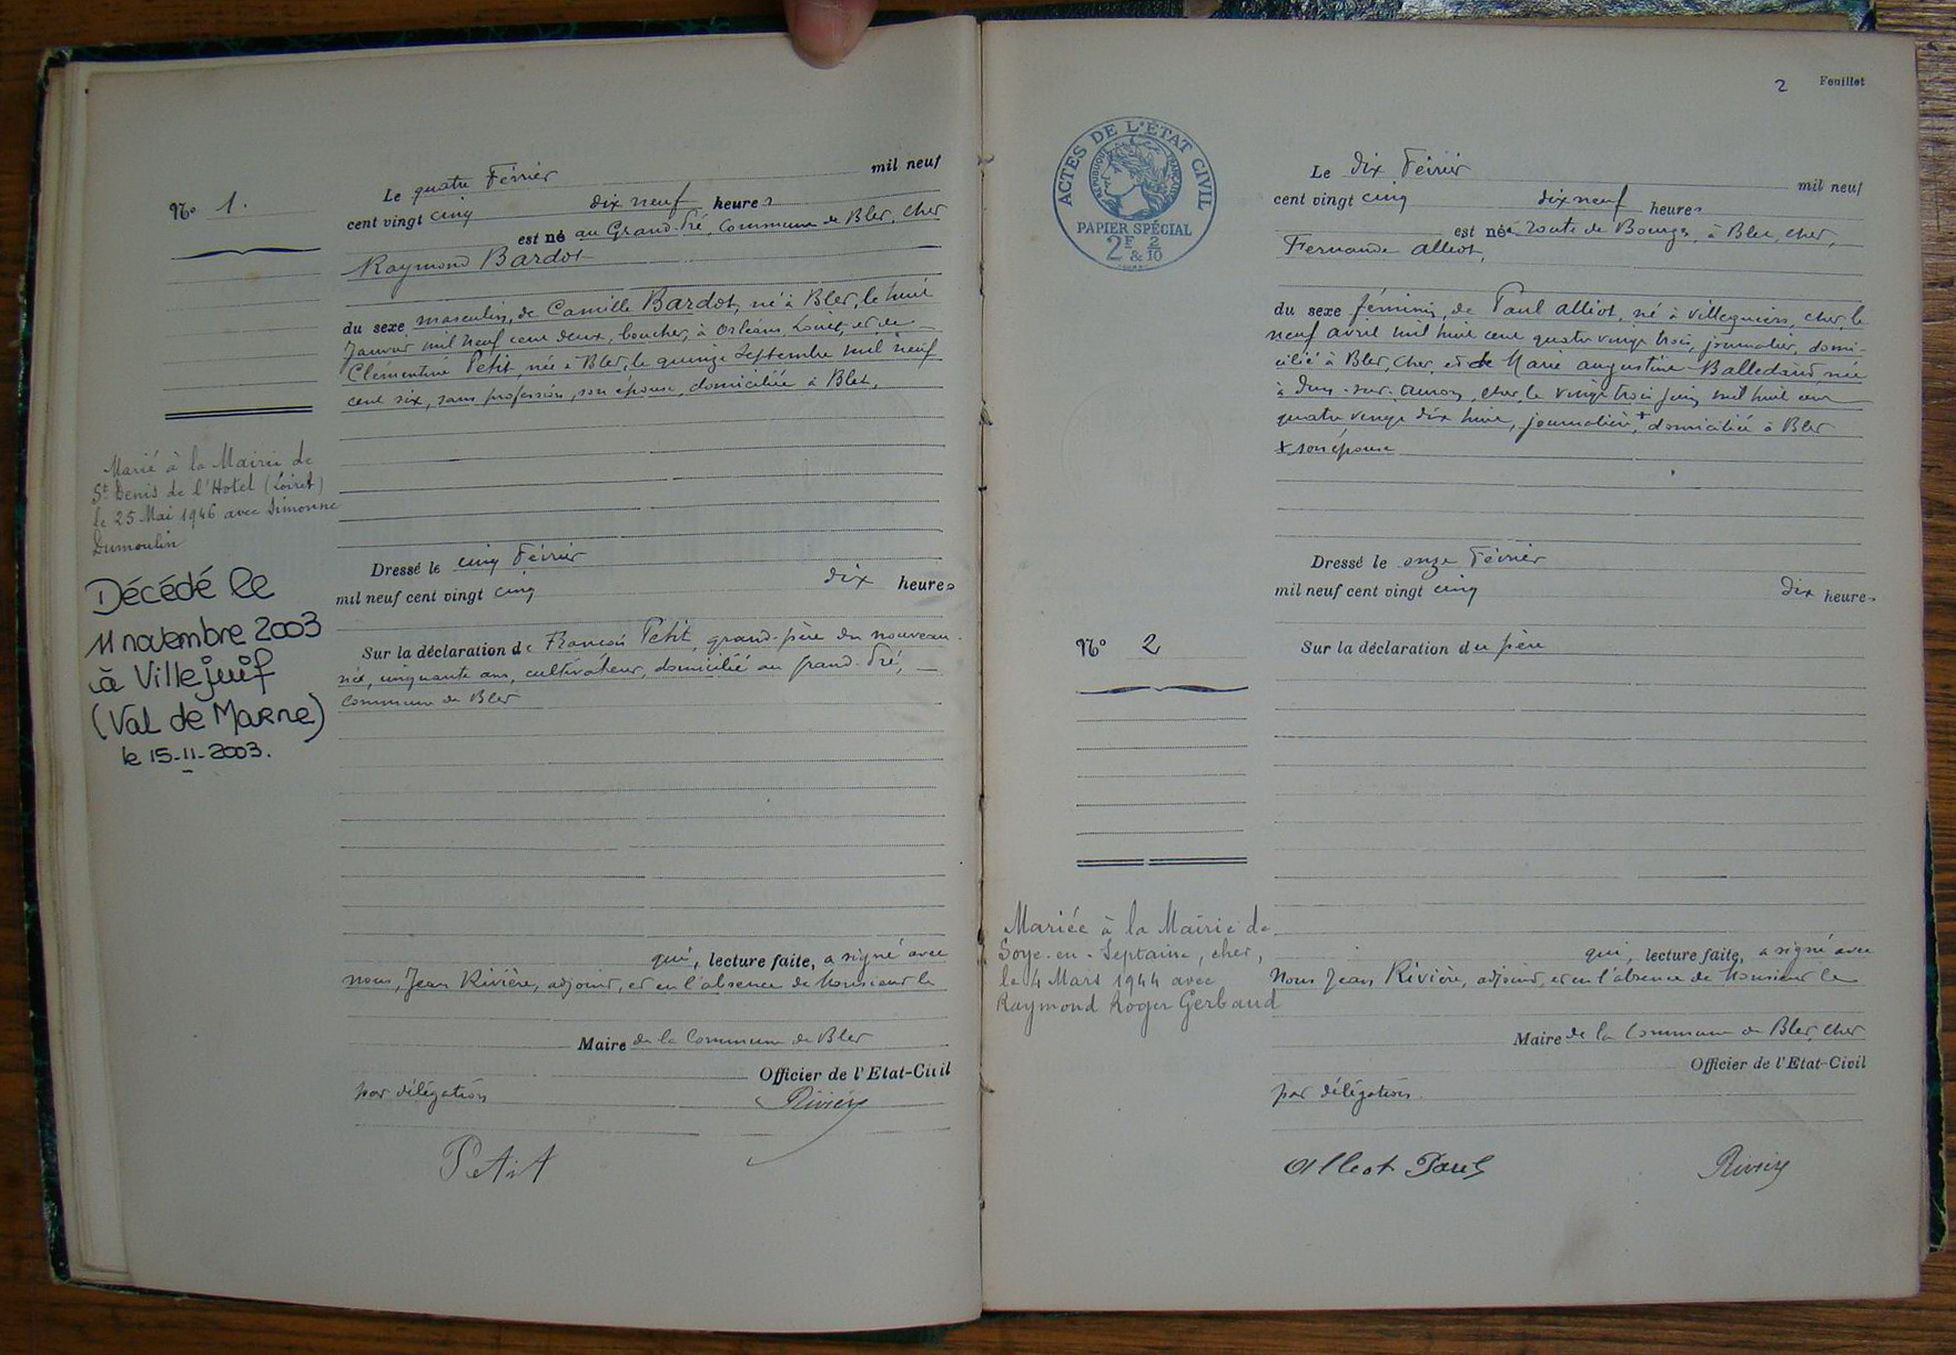 Nº 1.
Le quatre Février mil neuf
cent vingt cinq dix neuf heures
est né au Grand-Pré, Commune de Blet, Cher
Raymond Bardot
du sexe masculin, de Camille Bardot, né à Blet, le huit
Janvier mil neuf cent deux, boucher, à Orléans, Loiret, et de
Clémentine Petit, née à Blet, le quinze Septembre mil neuf
cent six, sans profession, son épouse, domiciliée à Blet.
Marié à la Mairie de
St Denis de l'Hotel (Loiret)
le 25 Mai 1946 avec Simonne
Dumoulin
Décédé le
11 novembre 2003
à Villejuif
(Val de Marne)
le 15-11-2003.
Dressé le cinq Février
mil neuf cent vingt cinq dix heures
Sur la déclaration de François Petit, grand-père du nouveau-
né, cinquante ans, cultivateur, domicilié au Grand-Pré,
Commune de Blet
qui, lecture faite, a signé avec
nous, Jean Rivière, adjoint, et en l'absence de Monsieur le
Maire de la Commune de Blet
Officier de l'Etat-Civil
par délégation Rivière
Petit
2 Feuillet
ACTES DE L'ÉTAT CIVIL
RÉPUBLIQUE FRANÇAISE
PAPIER SPÉCIAL
2F & 2/10
Le dix Février mil neuf
cent vingt cinq dix neuf heures
est née route de Bourges, à Blet, Cher,
Fernande Alliot,
du sexe féminin, de Paul Alliot, né à Villequiers, Cher, le
neuf avril mil huit cent quatre vingt trois, journalier, domi-
cilié à Blet, Cher, et de Marie Augustine Balledaud, née
à Dun-sur-Auron, Cher, le vingt trois juin mil huit cent
quatre vingt dix huit, journalière, + domiciliée à Blet
+ son épouse
Dressé le onze Février
mil neuf cent vingt cinq dix heures
Nº 2
Sur la déclaration du père
Mariée à la Mairie de
Soye-en-Septaine, Cher,
le 4 Mars 1944 avec
Raymond Roger Gerbaud
qui, lecture faite, a signé avec
Nous Jean Rivière, adjoint, et en l'absence de Monsieur le
Maire de la Commune de Blet, Cher
Officier de l'Etat-Civil
par délégation.
Alliot Paul Rivière